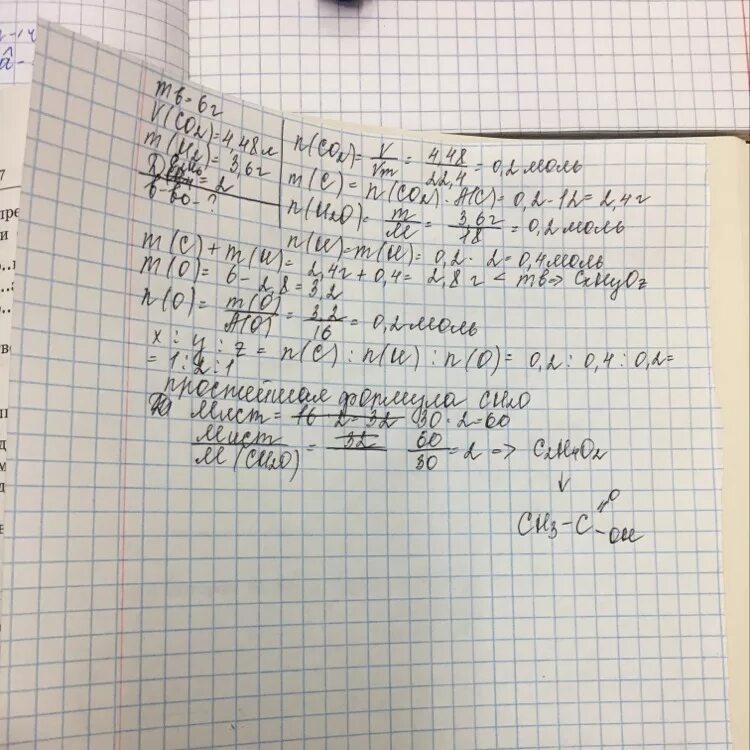 mв = 6г
V(CO2) = 4,48л
m(H2) = 3,6г
= 2
в-во - ?
n(CO2) = V/Vm = 4,48/22,4 = 0,2 моль
m(C) = n(CO2) · A(C) = 0,2 · 12 = 2,4г
n(H2O) = m/M = 3,6г/18 = 0,2 моль
n(H) = m(H) = 0,2 · 2 = 0,4 моль
m(C) + m(H) = 2,4г + 0,4 = 2,8г < mв => CxHyOz
m(O) = 6 - 2,8 = 3,2
n(O) = m(O)/A(O) = 3,2/16 = 0,2 моль
x : y : z = n(C) : n(H) : n(O) = 0,2 : 0,4 : 0,2 =
= 1:2:1
простейшая формула CH2O
Mист = 16 · 2 = 32 30 · 2 = 60
Mист/M(CH2O) = 32 60/30 = 2 => C2H4O2
↓
CH3 - C =O - OH